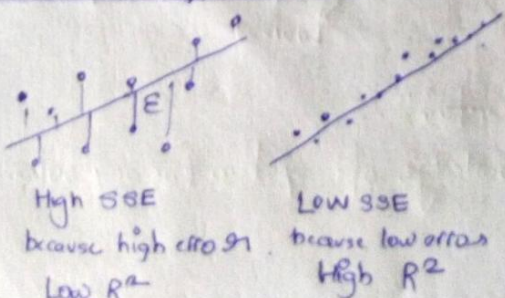 ε
High SSE
because high error.
Low R²
LOW SSE
because low errors
High R²